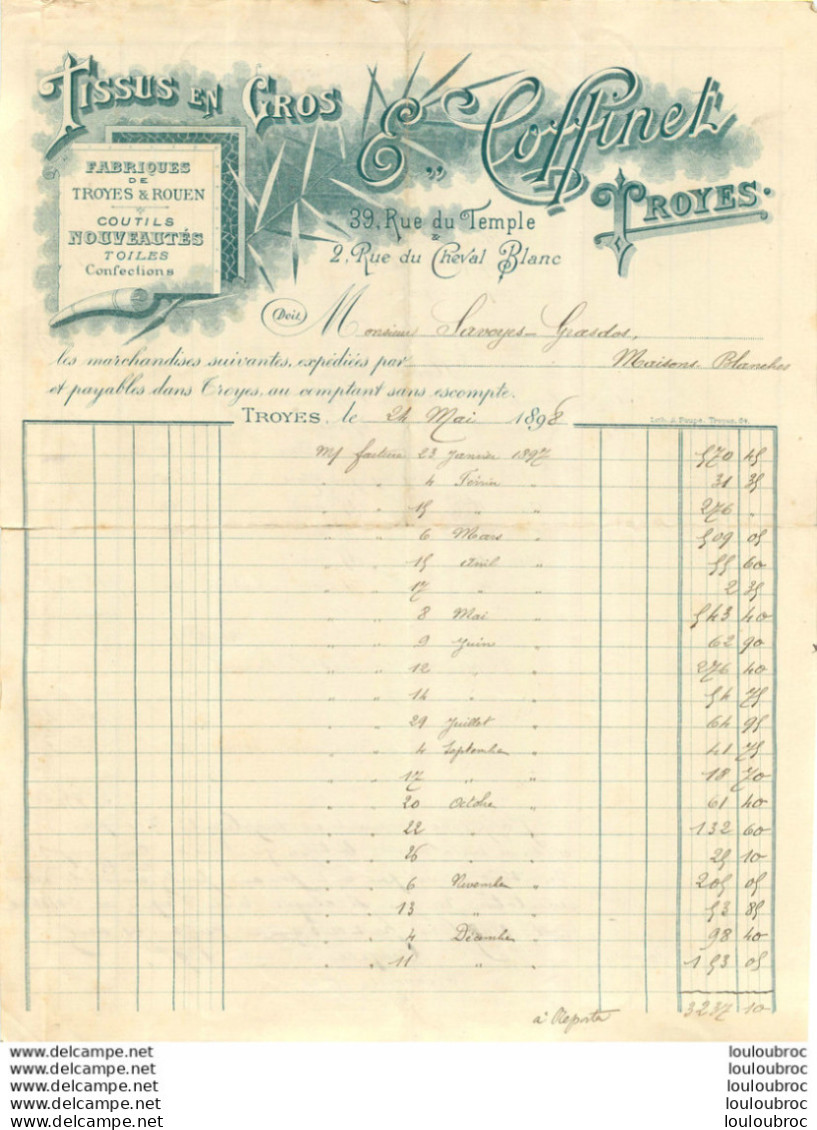 Tissus en Gros
E. Coffinet
Troyes.
FABRIQUES
DE
TROYES & ROUEN
COUTILS
NOUVEAUTÉS
TOILES
Confections
39, Rue du Temple
&
2, Rue du Cheval Blanc
(Doit) Monsieur Savoyes-Grasdos,
les marchandises suivantes, expédiées par Maisons Blanches
et payables dans Troyes, au comptant sans escompte.
TROYES, le 24 Mai 1898
Lith. J. Troyes.
M/ facture 23 Janvier 1897 570 45
" " 4 Février " 31 35
" " 15 " " 276 "
" " 6 Mars " 509 05
" " 15 Avril " 55 60
" " 17 " " 2 35
" " 8 Mai " 543 40
" " 9 Juin " 62 90
" " 12 " " 276 40
" " 14 " " 54 75
" " 29 Juillet " 64 95
" " 4 Septembre " 41 75
" " 17 " " 18 70
" " 20 Octobre " 61 40
" " 22 " " 132 60
" " 26 " " 25 10
" " 6 Novembre " 205 05
" " 13 " " 53 85
" " 4 Décembre " 98 40
" " 11 " " 153 05
à Reporter 3237 10
www.delcampe.net louloubroc
www.delcampe.net louloubroc
www.delcampe.net louloubroc
www.delcampe.net louloubroc
www.delcampe.net louloubroc